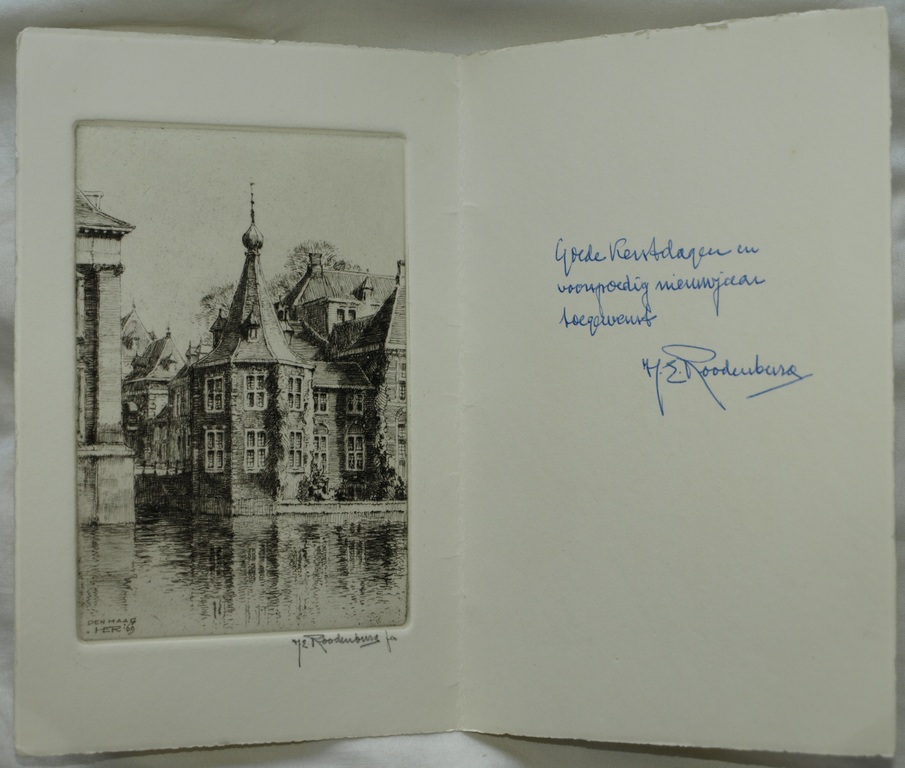 DEN HAAG
HER '29
H.E. Roodenburg fc
Goede Kerstdagen en
voorspoedig nieuwjaar
toegewenst
H.E. Roodenburg